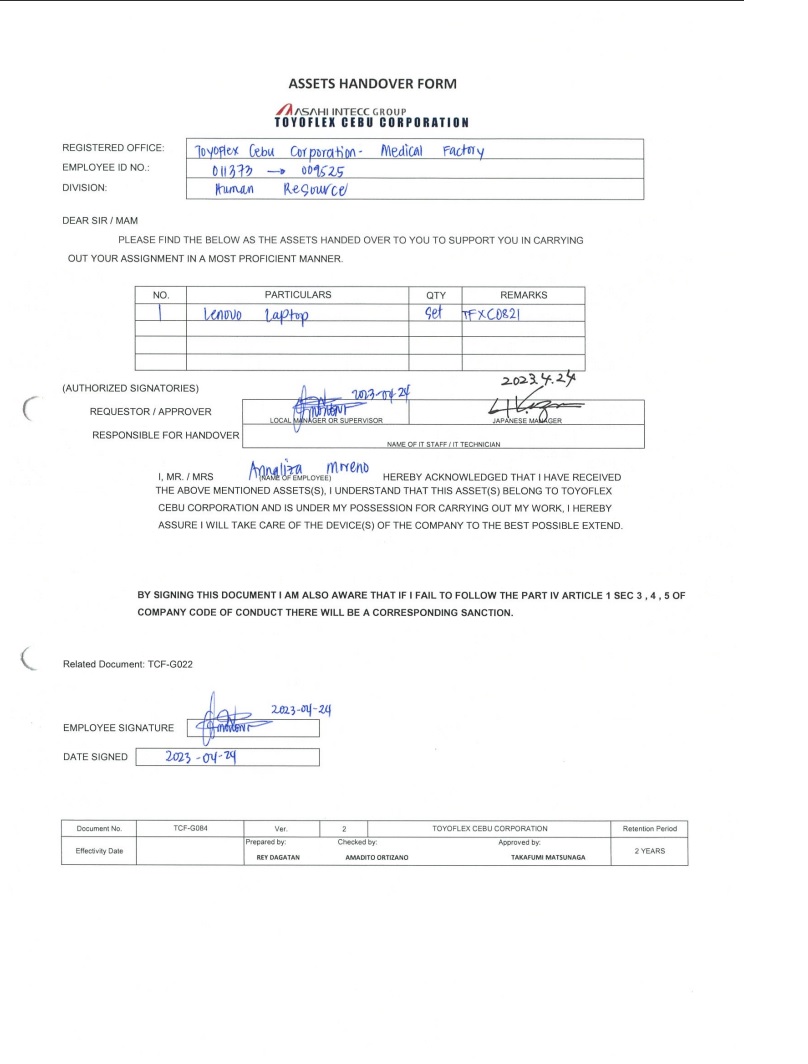 ASSETS HANDOVER FORM
ASAHI INTECC GROUP
TOYOFLEX CEBU CORPORATION
REGISTERED OFFICE: Toyoflex Cebu Corporation- Medical Factory
EMPLOYEE ID NO.: 011373 → 009525
DIVISION: Human Resource
DEAR SIR / MAM
PLEASE FIND THE BELOW AS THE ASSETS HANDED OVER TO YOU TO SUPPORT YOU IN CARRYING
OUT YOUR ASSIGNMENT IN A MOST PROFICIENT MANNER.
NO. PARTICULARS QTY REMARKS
1 Lenovo Laptop Set TFXC0821
2023.4.24
(AUTHORIZED SIGNATORIES) 2023-04-24
REQUESTOR / APPROVER
LOCAL MANAGER OR SUPERVISOR JAPANESE MANAGER
RESPONSIBLE FOR HANDOVER
NAME OF IT STAFF / IT TECHNICIAN
I, MR. / MRS Annaliza Moreno HEREBY ACKNOWLEDGED THAT I HAVE RECEIVED
(NAME OF EMPLOYEE)
THE ABOVE MENTIONED ASSETS(S), I UNDERSTAND THAT THIS ASSET(S) BELONG TO TOYOFLEX
CEBU CORPORATION AND IS UNDER MY POSSESSION FOR CARRYING OUT MY WORK, I HEREBY
ASSURE I WILL TAKE CARE OF THE DEVICE(S) OF THE COMPANY TO THE BEST POSSIBLE EXTEND.
BY SIGNING THIS DOCUMENT I AM ALSO AWARE THAT IF I FAIL TO FOLLOW THE PART IV ARTICLE 1 SEC 3 , 4 , 5 OF
COMPANY CODE OF CONDUCT THERE WILL BE A CORRESPONDING SANCTION.
Related Document: TCF-G022
2023-04-24
EMPLOYEE SIGNATURE
DATE SIGNED 2023-04-24
Document No. TCF-G084 Ver. 2 TOYOFLEX CEBU CORPORATION Retention Period
Effectivity Date Prepared by: Checked by: Approved by: 2 YEARS
REY DAGATAN AMADITO ORTIZANO TAKAFUMI MATSUNAGA